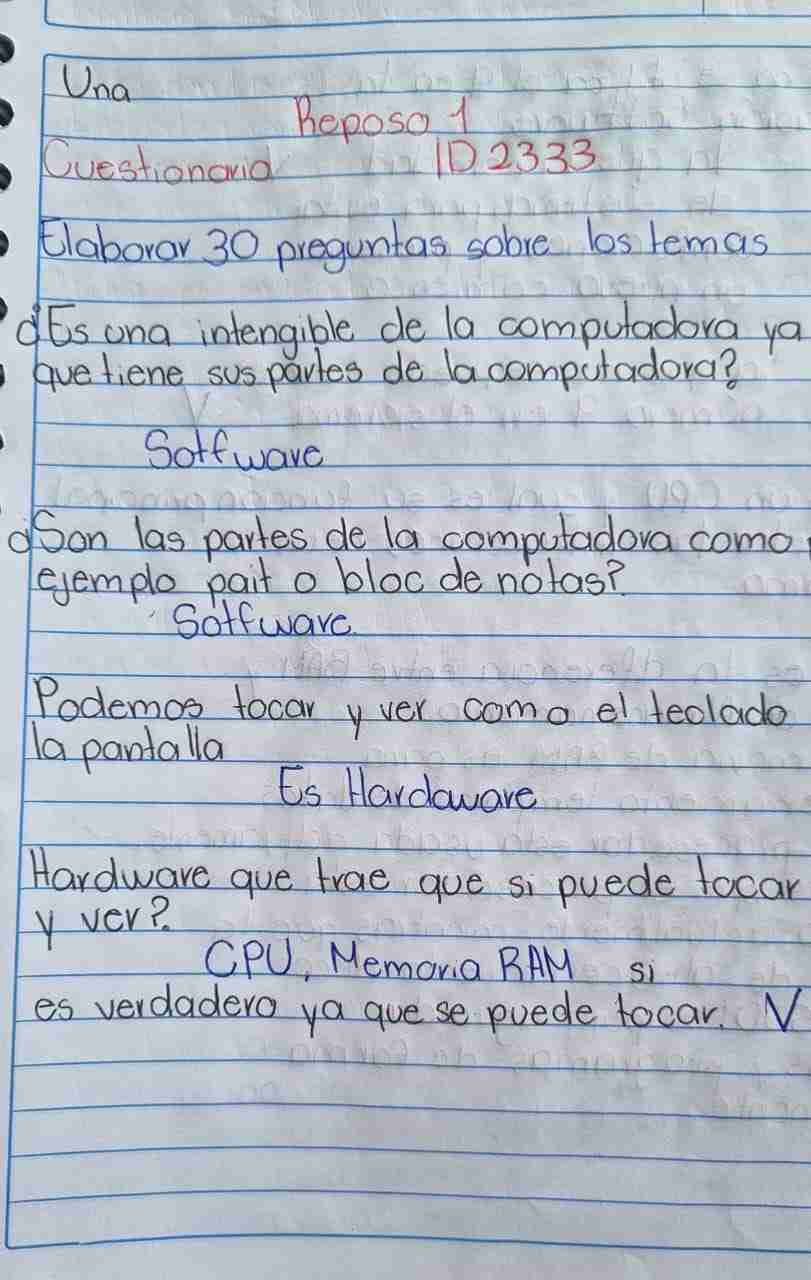 Una
Reposo 1
Cuestionario ID 2333
Elaborar 30 preguntas sobre los temas
¿Es una intengible de la computadora ya
que tiene sus partes de la computadora?
Sotfware
¿Son las partes de la computadora como
ejemplo pait o bloc de notas?
Sotfware.
Podemos tocar y ver como el teclado
la pantalla
Es Hardaware
Hardware que trae que si puede tocar
y ver?
CPU, Memoria RAM si
es verdadero ya que se puede tocar. V